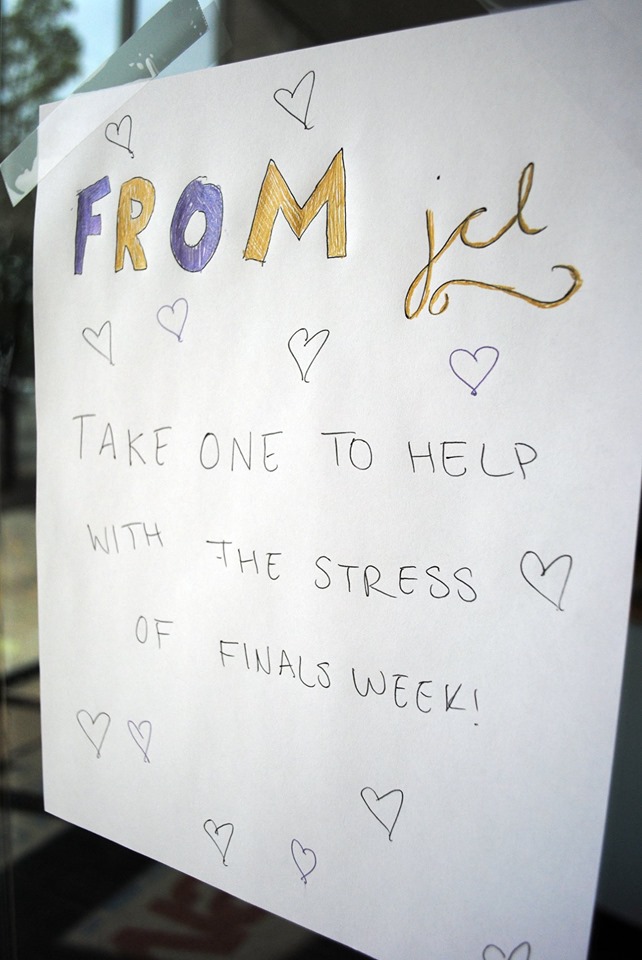 FROM jcl
TAKE ONE TO HELP
WITH THE STRESS
OF FINALS WEEK!